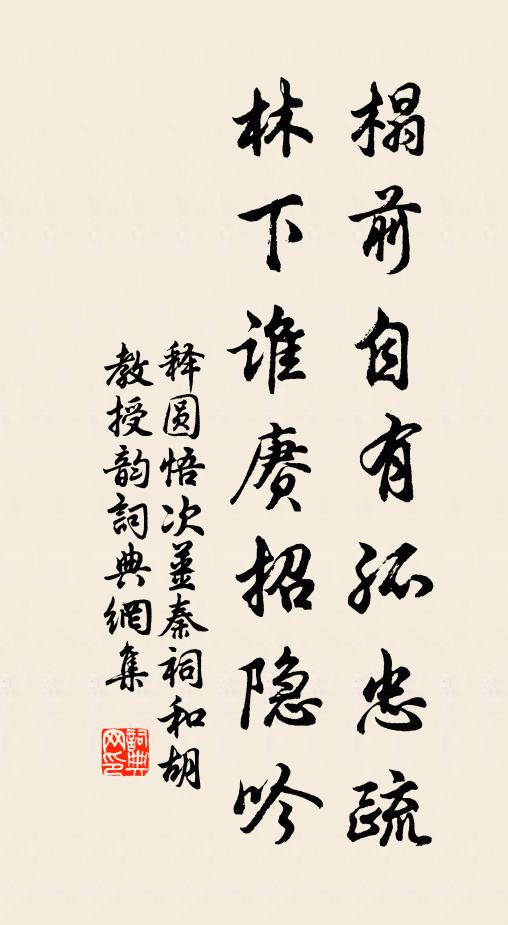 榻前自有孤忠疏
林下谁赓招隐吟
释圆悟次董秦祠和胡
教授韵詞典網集
詞典网印